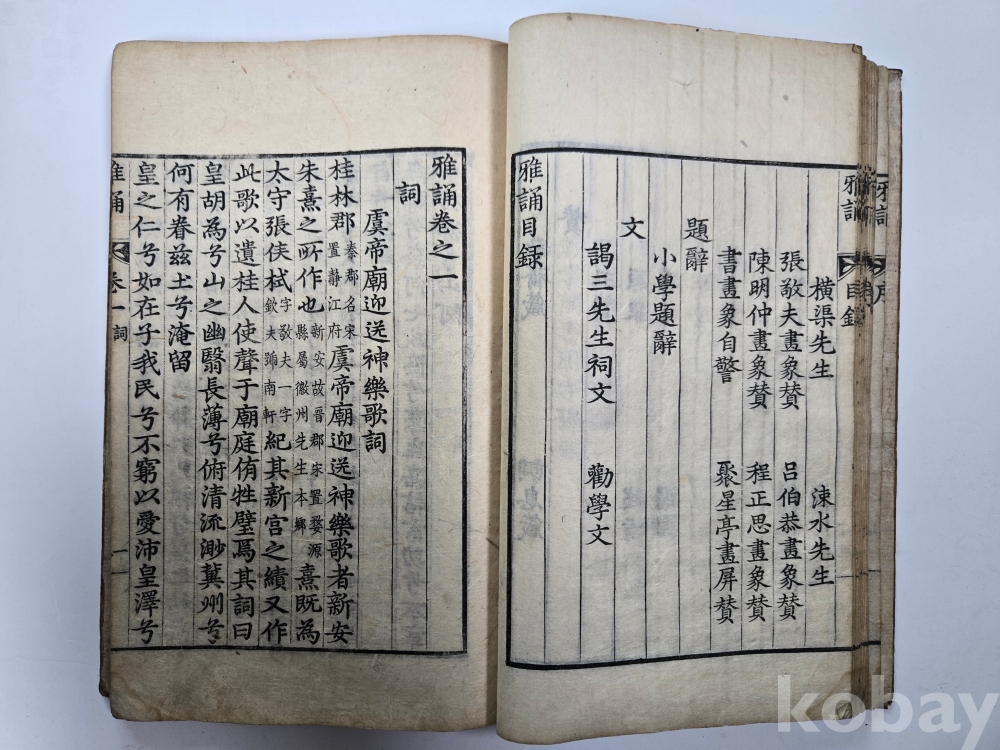 橫渠先生 涑水先生
張敬夫畫象賛 呂伯恭畫象賛
陳明仲畫象賛 程正思畫象賛
書畫象自警 聚星亭畫屏賛
題辭
小學題辭
文
謁三先生祠文 勸學文
雅誦目録
雅誦卷之一
詞
虞帝廟迎送神樂歌詞
桂林郡秦郡名宋置靜江府虞帝廟迎送神樂歌者新安
朱熹之所作也新安故晋郡宋置婺源縣屬徽州先生本鄉熹既為
太守張侯栻字敬夫一字欽夫號南軒紀其新宮之績又作
此歌以遺桂人使聲于廟庭侑牲璧焉其詞曰
皇胡為兮山之幽翳長薄兮俯清流渺兾州兮
何有眷茲土兮淹留
皇之仁兮如在子我民兮不窮以愛沛皇澤兮
雅誦 卷一 詞 一
kobay